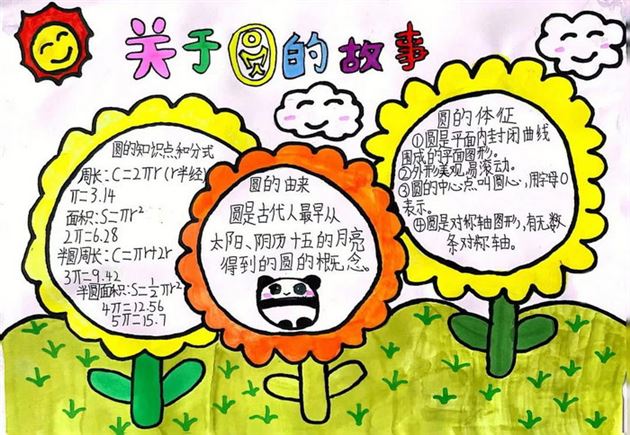 关于圆的故事
圆的知识点和分式
周长:C=2πr(r半经)
π=3.14
面积:S=πr²
2π=6.28
半圆周长:C=πr+2r
3π=9.42
半圆面积:S=½πr²
4π=12.56
5π=15.7
圆的由来
圆是古代人最早从
太阳、阴历十五的月亮
得到的圆的概念。
圆的体征
①圆是平面内封闭曲线
围成的平面图形。
②外形美观,易滚动。
③圆的中心点叫圆心,用字母O
表示。
④圆是对称轴图形,有无数
条对称轴。